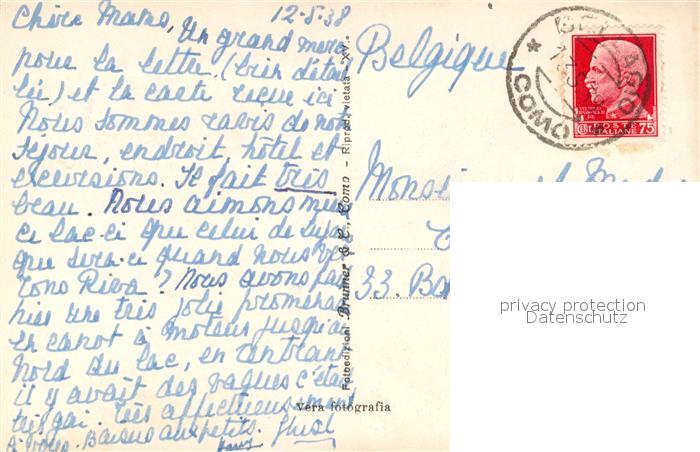 Chère Mams, Un grand merci
12-5-38
pour la lettre (bien détail
lée) et la carte reçue ici
Nous sommes ravis de not
séjour, endroit, hôtel et
excursions. Il fait très
beau. Nous aimons mieu
ce lac-ci que celui de
que sera-ce quand nous ver
rons Riva? Nous avons fait
hier une très jolie promenad
en canot à moteur jusqu'au
Nord du lac, en rentrant
il y avait des vagues c'était
très gai. Très affectueusement
à vous. Baisers aux petits.
Fotoedizioni Brunner & C., Como - Riprod. vietata "XV"
Vera fotografia
Belgique
BELLAGIO
COMO
POSTE
ITALIANE 75
Monsieur et Mad
33. 
privacy protection
Datenschutz